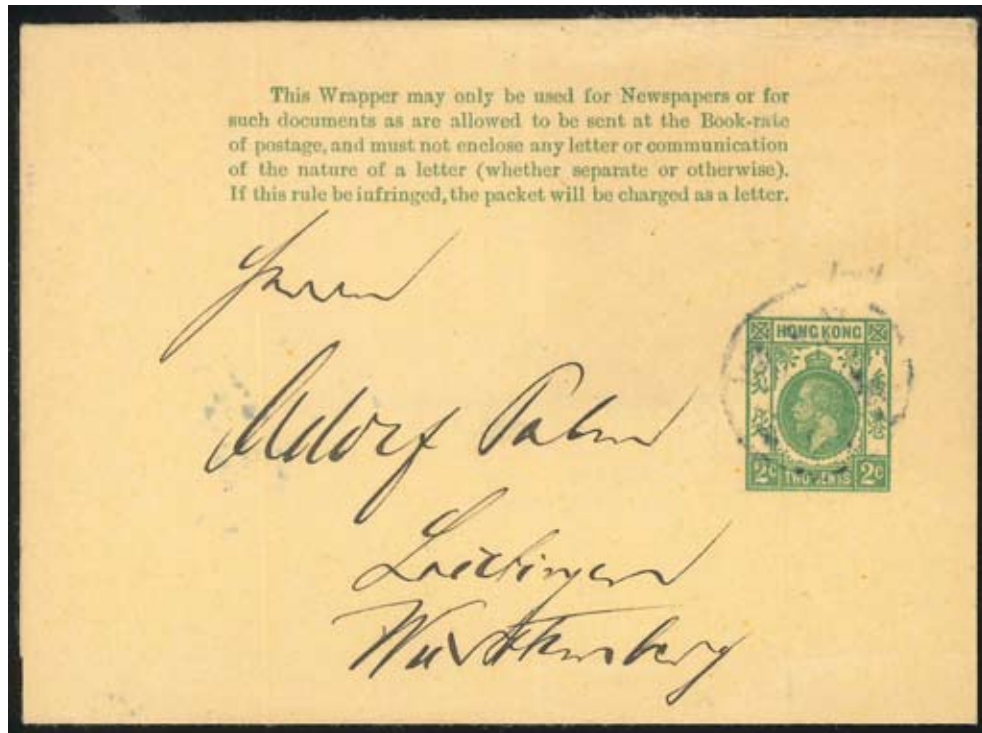 This Wrapper may only be used for Newspapers or for
such documents as are allowed to be sent at the Book-rate
of postage, and must not enclose any letter or communication
of the nature of a letter (whether separate or otherwise).
If this rule be infringed, the packet will be charged as a letter.
Herrn
HONG KONG
Adolf Palm
香港
2C TWO CENTS 2C
Württemberg